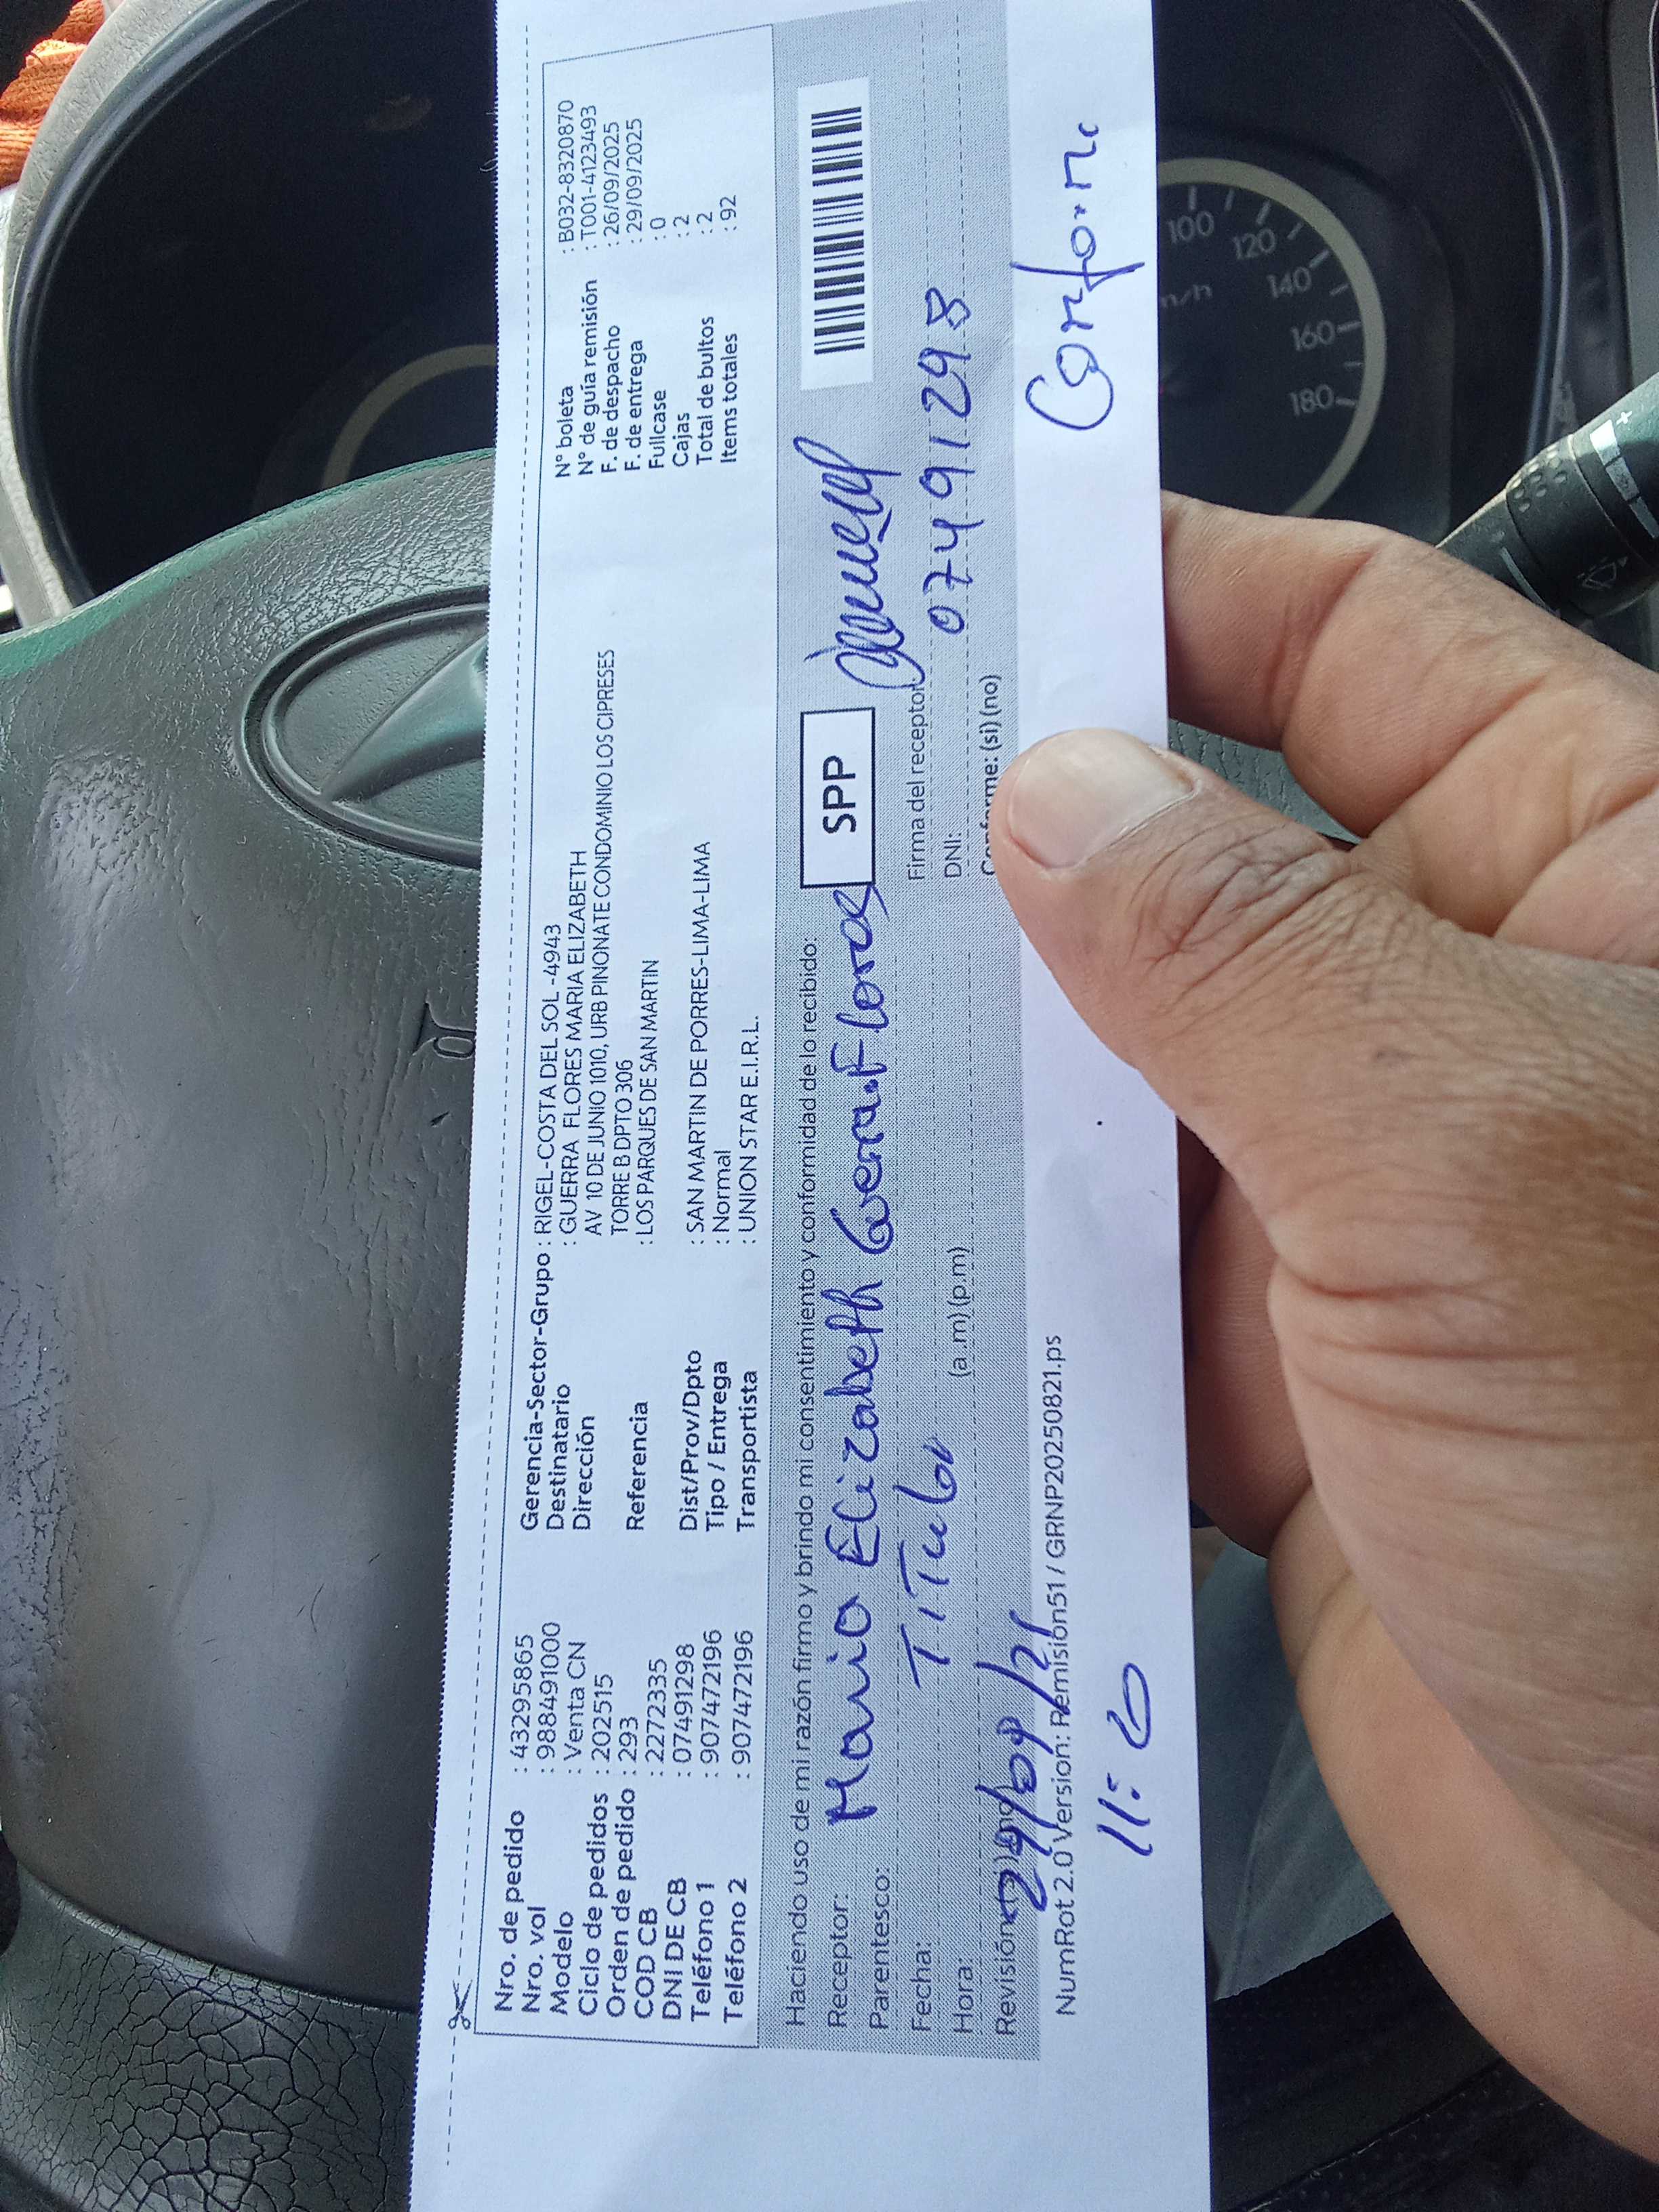 Nro. de pedido : 43295865
Nro. vol : 988491000
Modelo : Venta CN
Ciclo de pedidos : 202515
Orden de pedido : 293
COD CB : 2272335
DNI DE CB : 07491298
Teléfono 1 : 907472196
Teléfono 2 : 907472196
Gerencia-Sector-Grupo : RIGEL-COSTA DEL SOL -4943
Destinatario : GUERRA FLORES MARIA ELIZABETH
Dirección AV 10 DE JUNIO 1010, URB PINONATE CONDOMINIO LOS CIPRESES
TORRE B DPTO 306
Referencia : LOS PARQUES DE SAN MARTIN
Dist/Prov/Dpto : SAN MARTIN DE PORRES-LIMA-LIMA
Tipo / Entrega : Normal
Transportista : UNION STAR E.I.R.L.
N° boleta : B032-8320870
N° de guía remisión : T001-4123493
F. de despacho : 26/09/2025
F. de entrega : 29/09/2025
Fullcase : 0
Cajas : 2
Total de bultos : 2
Items totales : 92
Haciendo uso de mi razón firmo y brindo mi consentimiento y conformidad de lo recibido:
SPP
Receptor: Maria Elizabeth Guerra Flores
Parentesco: Titular
Fecha:
Hora: (a.m) (p.m)
Revisión
29/09/
Firma del receptor:
DNI: 07491298
(si) (no)
NumRot 2.0 Version: Remision51 / GRNP20250821.ps
Conforme